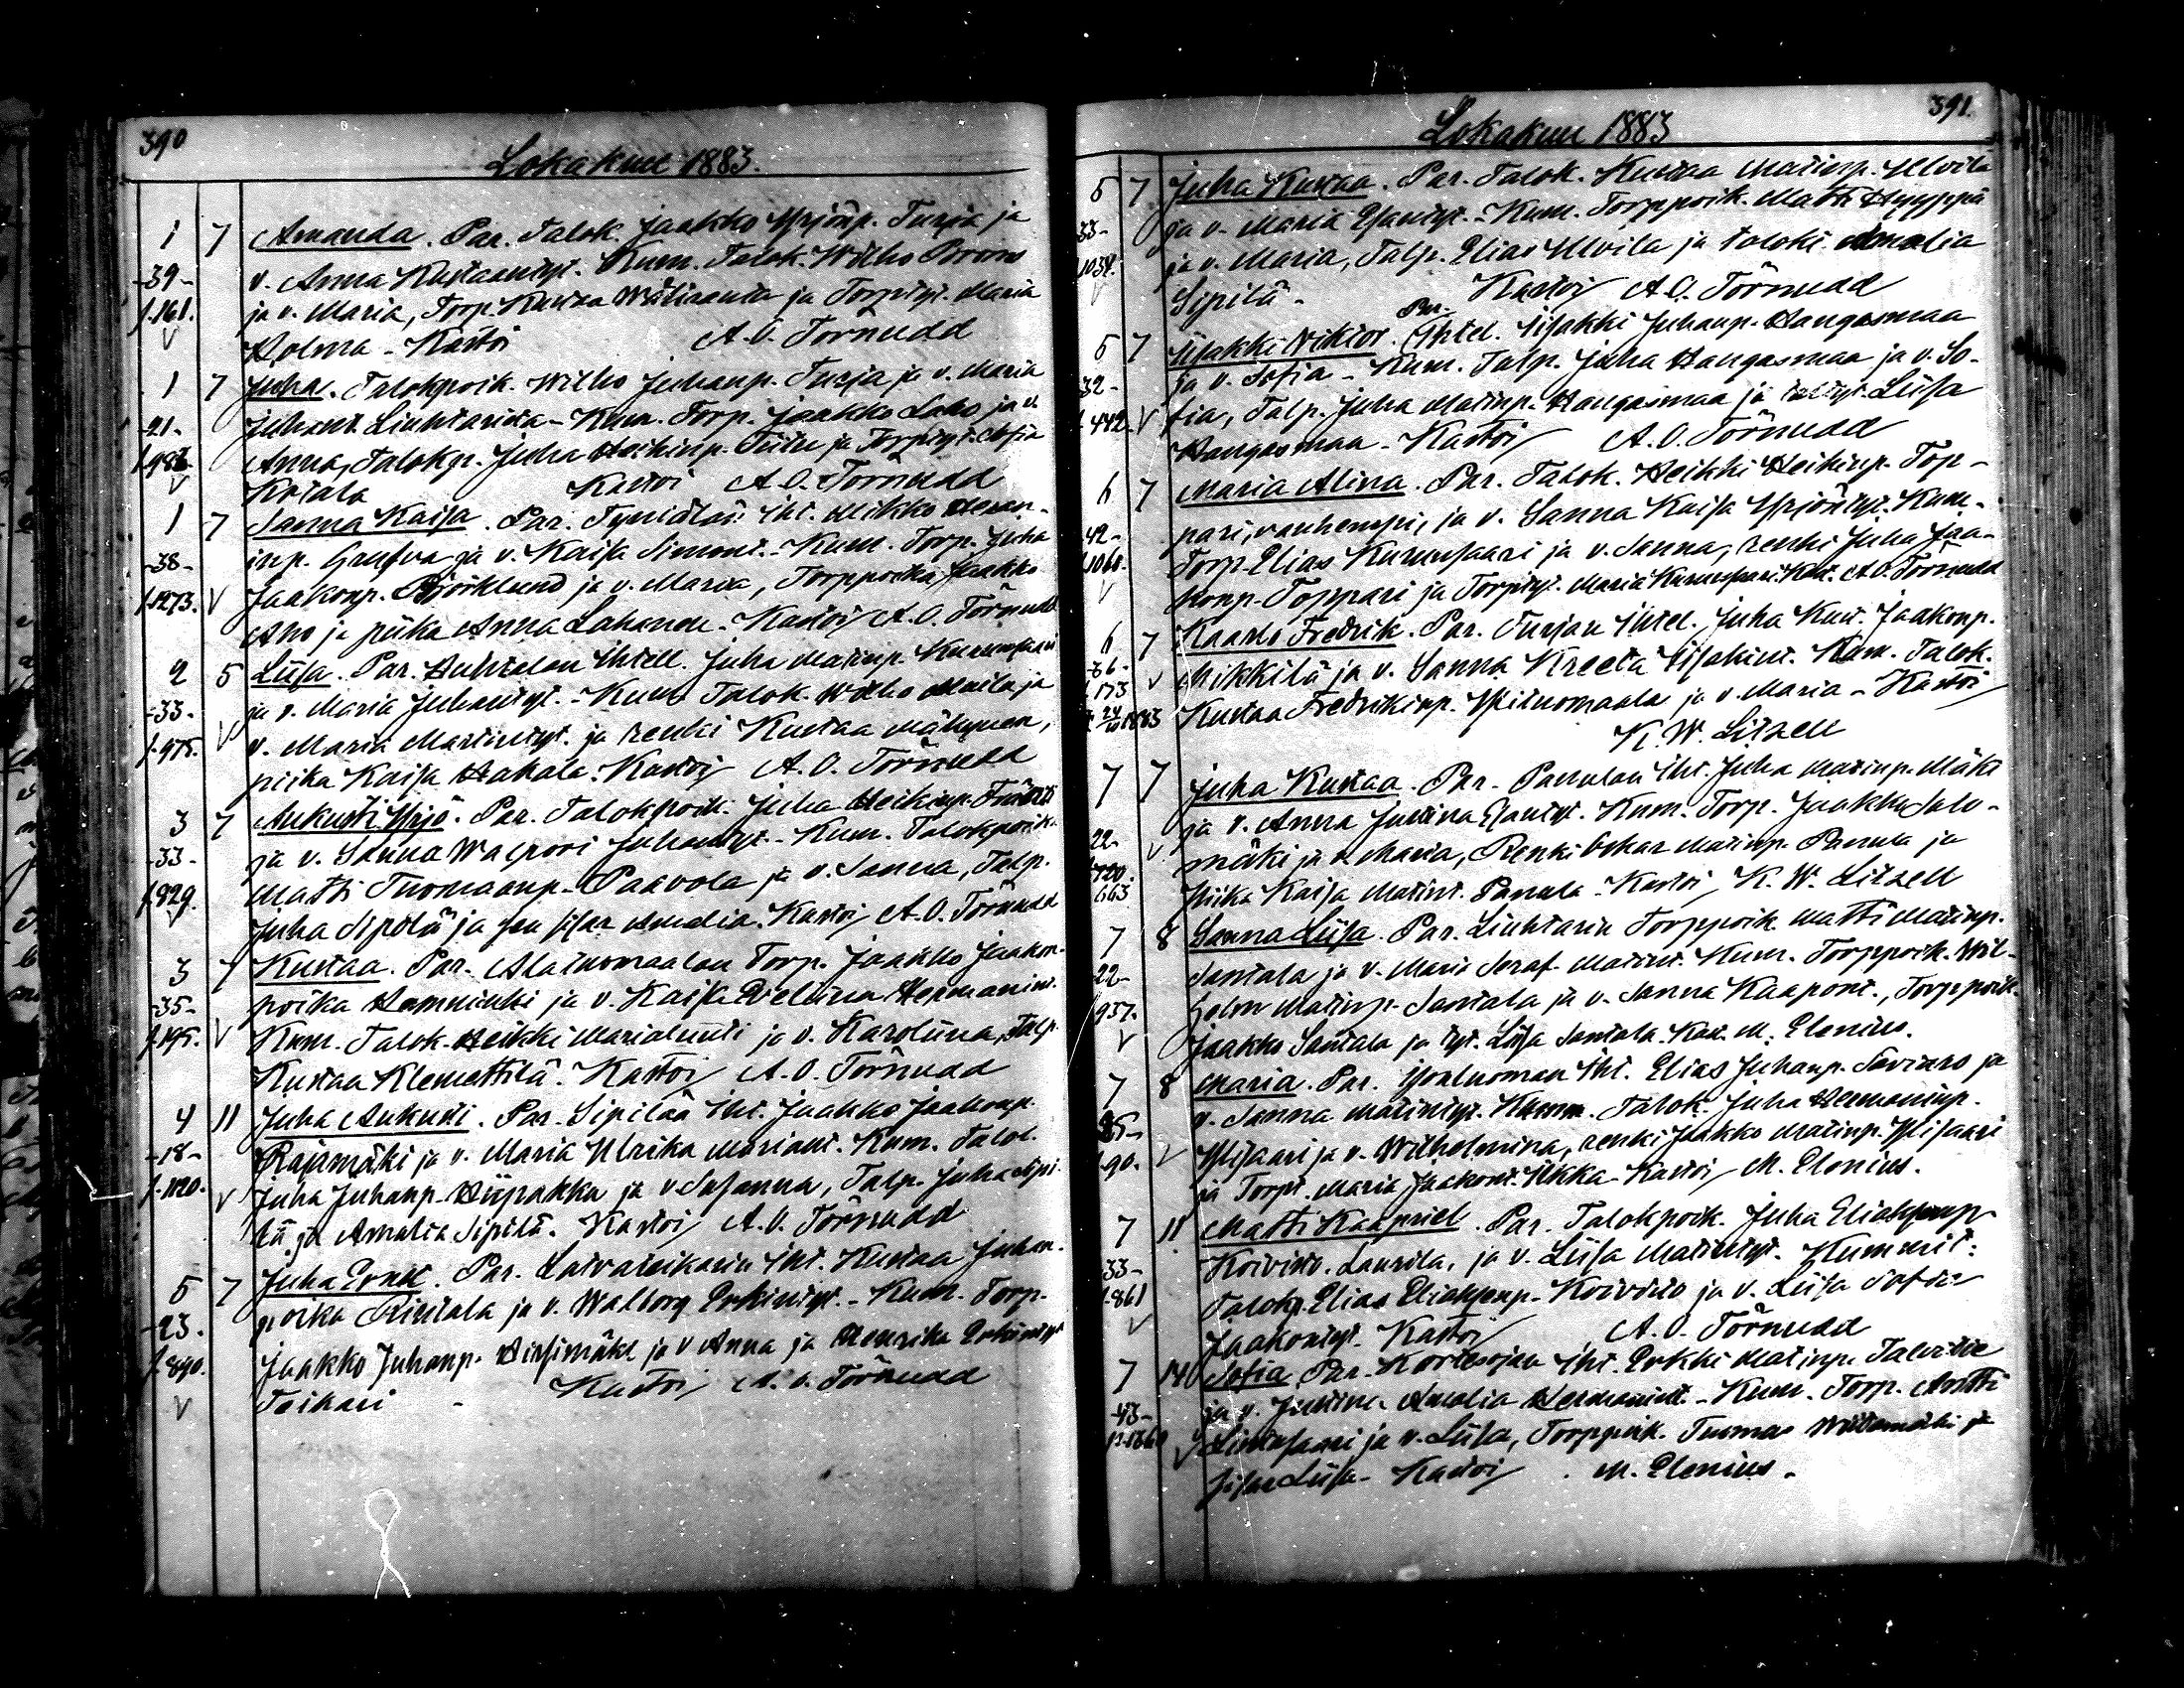 390
Lokakuu 1883.
1 7 Amanda. Par. Talok. Jaakko Yrjönp. Turja ja
-39- v. Anna Kustaantyt. Kum. Talok. Wilho
f.161. ja v. Maria, Torp. Kustaa ja Torpityt. Maria
V Holma - Kastoi A.O. Törnudd
1 7 Juha. Talokpoik. Wilho Juhanp. Turja ja v. Maria
-21- Juhant. Liuhtarista - Kum. Torp. Jaakko Laho ja v.
f.982. Anna, Talokp. Juha Heikinp. ja Torpityt. Sofia
V Kotala Kastoi A.O. Törnudd
1 7 Sanna Kaisa. Par. iht. Mikko
-38- inp. ja v. Kaisa Simont. - Kum. Torp. Juha
f.1273. V Jaakonp. Björklund ja v. Maria, Torppoika Jaakko
Aho ja piika Anna Lahanen. Kastoi A.O. Törnudd
2 5 Liisa. Par. Huhtalan Ihtell. Juha Matinp. Kurunsaari
-33. ja v. Maria Juhantyt. - Kum. Talok. Wilho ja
f.975. V v. Maria Martintyt. ja renki Kustaa Mähönen,
piika Kaisa Hakala. Kastoi A.O. Törnudd
3 7 Aukusti Yrjö. Par. Talokpoik. Juha Heikinp.
-33- ja v. Sanna Walpori Juhantyt. - Kum. Talokpoik.
f.829. Matti Tuomaanp. Paavola ja v. Sanna, Talp.
V Juha Sipilä ja sen sisar Amalia. Kastoi A.O. Törnudd
3 7 Kustaa. Par. Alatuomaalan Torp. Jaakko Jaakon-
-35- poika Hemminki ja v. Kaisa Eveliina Hermanint.
f.195. V Kum. Talok. Heikki Marialuuti ja v. Karoliina, Talp.
Kustaa Klemettilä. Kastoi A.O. Törnudd
4 11 Juha Aukusti. Par. Sipilän Iht. Jaakko Jaakonp.
-18- Rajamäki ja v. Maria Ulrika Kum. Talol.
f.1120. V Juha Juhanp. Hiipakka ja v Susanna, Talp. Juha Sipi-
lä ja Amalia Sipilä. Kastoi A.O. Törnudd
5 7 Juha Ernst. Par. Iht. Kustaa Juhan-
-23. poika Rintala ja v. Walborg Erkintyt. - Kum. Torp.
f.890. Jaakko Juhanp. Hirsimäki ja v Anna ja Henrika Erkintyt
V Toikari - Kastoi A.O. Törnudd
391.
Lokakuu 1883
5 7 Juha Kustaa. Par. Talok. Kustaa Matinp. Ulvila
33- ja v. Maria Esantyt. - Kum. Torppoik. Matti Hyyppä
1038. ja v. Maria, Talp. Elias Ulvila ja talokt. Amalia
V Sipilä - Kastoi A.O. Törnudd
5 7 Iisakki Viktor. Par. Ihtel. Iisakki Juhanp. Hangasmaa
32- ja v. Sofia - Kum. Talp. Juha Hangasmaa ja v. So-
f.442 V fia, Talp. Juha Matinp. Hangasmaa ja Liisa
Hangasmaa - Kastoi A.O. Törnudd
6 7 Maria Alina. Par. Talok. Heikki Heikinp. Top-
42- pari, vanhempi, ja v. Sanna Kaisa Yrjöntyt. Kum.
f.1060. Torp. Elias Kurunsaari ja v. Sanna, renki Juha Jaa-
V konp. Toppari ja Torpityt. Maria Kurunsaari. Kast. A.O. Törnudd
6 7 Kaarlo Fredrik. Par. Turjan Ihtel. Juha Kust. Jaakonp.
-36- Mikkilä ja v. Sanna Kreeta Iisakint. Kum. Talok.
f.173 V Kustaa Fredrikinp. Ylituomaala ja v. Maria - Kastoi
24/10 1883 K.W. Litzell
7 7 Juha Kustaa. Par. Pannulan Iht. Juha Matinp. Mäki
22- ja v. Anna Justina Esantyt. Kum. Torp. Jaakko Salo-
V mäki ja v. Maria, Renki Oskar Matinp. Pannula ja
663 Piika Kaisa Matint. Panula - Kastoi K.W. Litzell
7 8 Sanna Liisa. Par. Liuhtarin Torppoik. Matti Matinp.
22- Santala ja v. Maria Seraf. Matint. Kum. Torppoik. Wil-
937. helm Matinp. Santala ja v. Sanna Kaapont., Torppoik.
V Jaakko Santala ja tyt. Liisa Santala. Kast. M. Elenius.
7 8 Maria. Par. Iht. Elias Juhanp. Saviaro ja
25- v. Sanna Matintyt. Kumm. Talok. Juha Hermaninp.
f.90. V Ylisaari ja v. Wilhelmina, renki Jaakko Matinp. Ylisaari
ja Torpt. Maria Jaakont. Ukka - Kastoi M. Elenius.
7 11 Matti Kaapriel. Par. Talokpoik. Juha Eliaksenp.
33- Koivisto. Laurila, ja v. Liisa Matintyt. Kummit:
f.861 Talokp. Elias Eliaksenp. Koivisto ja v. Liisa Sofia
V Jaakontyt. Kastoi A.O. Törnudd
7 14 Sofia Par. Kortesojan Iht. Erkki Matinp. Talvitie
-43- ja v. Justina Amalia Hermanint. - Kum. Torp. Antti
V Linnusaari ja v. Liisa, Torppoik. Tuomas ja
sisar Liisa - Kastoi M. Elenius.